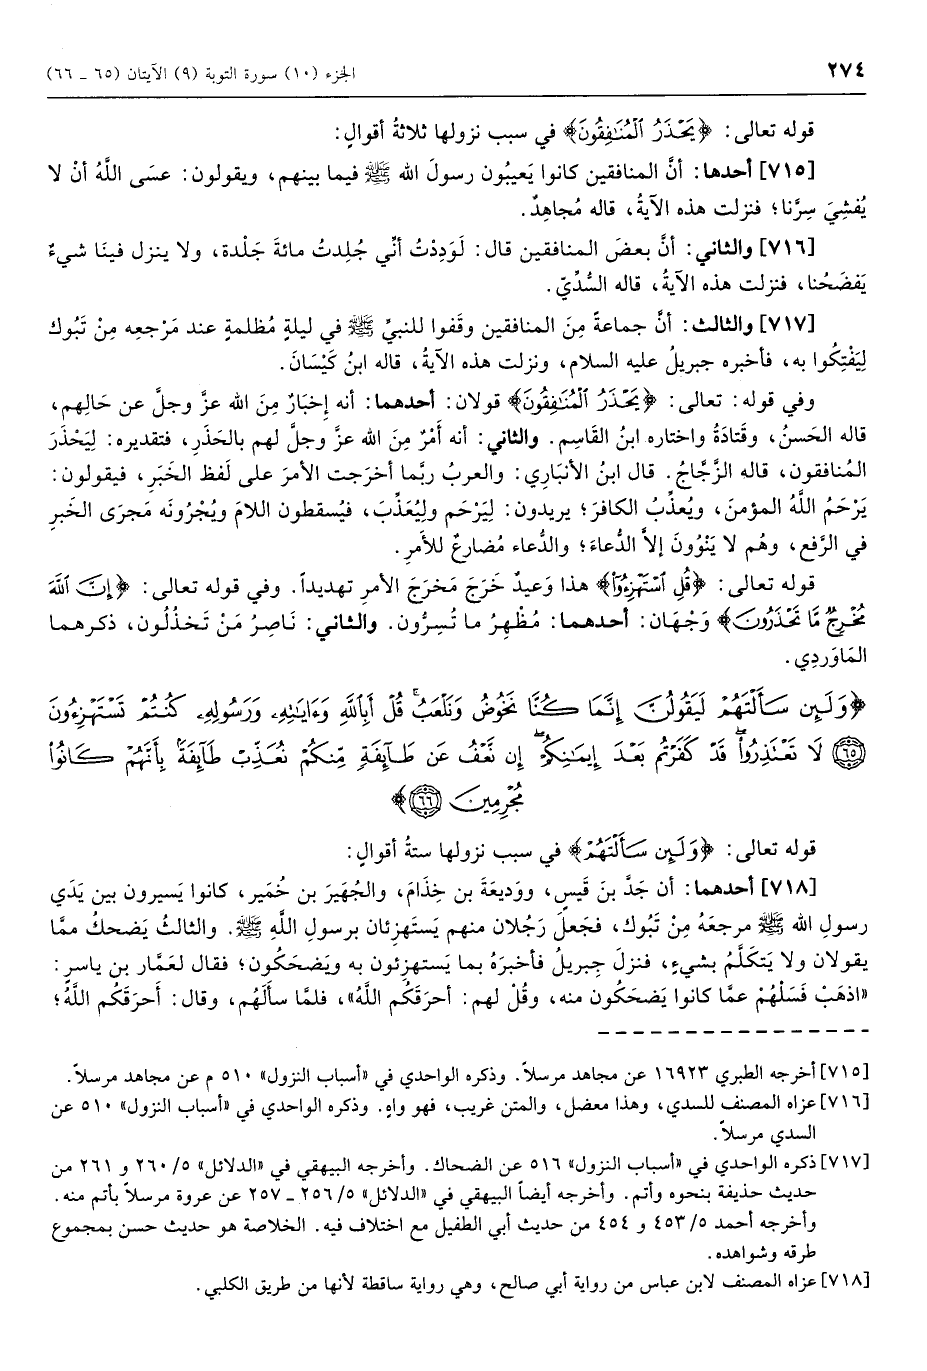 ٢٧٤
الجزء (١٠) سورة التوبة (٩) الآيتان (٦٥ ـ ٦٦)
قوله تعالى: ﴿يَحْذَرُ الْمُنَافِقُونَ﴾ في سبب نزولها ثلاثةُ أقوالٍ:
[٧١٥] أحدها: أنَّ المنافقين كانوا يَعيبُون رسولَ الله ﷺ فيما بينهم، ويقولون: عسَى اللَّهُ أنْ لا
يُفشِيَ سِرَّنا؛ فنزلت هذه الآيةُ، قاله مُجاهِدٌ.
[٧١٦] والثاني: أنَّ بعضَ المنافقين قال: لَوَدِدْتُ أنِّي جُلِدتُ مائةَ جَلْدة، ولا ينزل فينَا شيءٌ
يَفضَحُنا، فنزلت هذه الآيةُ، قاله السُّدِّيّ.
[٧١٧] والثالث: أنَّ جماعةً مِنَ المنافقين وقَفوا للنبيِّ ﷺ في ليلةٍ مُظلمةٍ عند مَرْجعِه مِنْ تَبُوك
لِيَفْتِكُوا به، فأخبره جبريلُ عليه السلام، ونزلت هذه الآيةُ، قاله ابنُ كَيْسَانَ.
وفي قوله: تعالى: ﴿يَحْذَرُ الْمُنَافِقُونَ﴾ قولان: أحدهما: أنه إخبَارٌ مِنَ الله عزَّ وجلَّ عن حَالِهم،
قاله الحَسنُ، وقَتادَةُ واختاره ابنُ القَاسِم. والثاني: أنه أَمْرٌ مِنَ الله عزَّ وجلَّ لهم بالحَذَرِ، فتقديره: لِيَحْذَرَ
المُنافقون، قاله الزَّجَّاجُ. قال ابنُ الأنبَارِي: والعربُ ربَّما أخرَجت الأمرَ على لَفظ الخَبَرِ، فيقولون:
يَرْحَمُ اللَّهُ المؤمنَ، ويُعذِّبُ الكافرَ؛ يريدون: لِيَرْحَم ولِيُعَذِّبَ، فيُسقطون اللامَ ويُجْرُونَه مَجرَى الخَبرِ
في الرَّفعِ، وهُم لا يَنْوُونَ إلاَّ الدُّعاءَ؛ والدُّعاء مُضارعٌ للأمرِ.
قوله تعالى: ﴿قُلِ اسْتَهْزِءُوا﴾ هذا وَعيدٌ خَرَجَ مَخرَجَ الأمرِ تهديداً. وفي قوله تعالى: ﴿إِنَّ اللَّهَ
مُخْرِجٌ مَّا تَحْذَرُونَ﴾ وَجْهَان: أحدهما: مُظْهِرُ ما تُسِرُّون. والثاني: نَاصِرُ مَنْ تَخذُلُون، ذكرهما
المَاوَردِي.
﴿وَلَئِن سَأَلْتَهُمْ لَيَقُولُنَّ إِنَّمَا كُنَّا نَخُوضُ وَنَلْعَبُ قُلْ أَبِاللَّهِ وَءَايَاتِهِ وَرَسُولِهِ كُنتُمْ تَسْتَهْزِءُونَ
(٦٥) لَا تَعْتَذِرُوا قَدْ كَفَرْتُم بَعْدَ إِيمَانِكُمْ إِن نَّعْفُ عَن طَائِفَةٍ مِّنكُمْ نُعَذِّبْ طَائِفَةً بِأَنَّهُمْ كَانُوا
مُجْرِمِينَ (٦٦)﴾
قوله تعالى: ﴿وَلَئِن سَأَلْتَهُمْ﴾ في سبب نزولها ستةُ أقوالٍ:
[٧١٨] أحدهما: أن جَدَّ بنَ قَيسٍ، ووَديعَةَ بن خِذَامَ، والجُهَيرَ بن خُمَير، كانوا يَسيرون بين يَدَي
رسولِ الله ﷺ مرجعَهُ مِنْ تَبُوك، فجَعلَ رَجُلان منهم يَستَهزِئان برسولِ اللَّهِ ﷺ. والثالثُ يَضحكُ ممَّا
يقولان ولا يَتكَلَّمُ بشيءٍ، فنزلَ جِبريلُ فأخبرَهُ بما يَستهزئون به ويَضحَكُون؛ فقال لعَمَّار بن ياسرٍ:
«اذهَبْ فَسَلْهُمْ عمَّا كانوا يَضحَكُون منه، وقُلْ لهم: أحرَقَكُم اللَّهُ»، فلمَّا سألَهُم، وقال: أَحرَقَكُم اللَّهُ؛
[٧١٥] أخرجه الطبري ١٦٩٢٣ عن مجاهد مرسلاً. وذكره الواحدي في «أسباب النزول» ٥١٠ م عن مجاهد مرسلاً.
[٧١٦] عزاه المصنف للسدي، وهذا معضل، والمتن غريب، فهو واهٍ. وذكره الواحدي في «أسباب النزول» ٥١٠ عن
السدي مرسلاً.
[٧١٧] ذكره الواحدي في «أسباب النزول» ٥١٦ عن الضحاك. وأخرجه البيهقي في «الدلائل» ٥/ ٢٦٠ و ٢٦١ من
حديث حذيفة بنحوه وأتم. وأخرجه أيضاً البيهقي في «الدلائل» ٥/ ٢٥٦ ـ ٢٥٧ عن عروة مرسلاً بأتم منه.
وأخرجه أحمد ٥/ ٤٥٣ و ٤٥٤ من حديث أبي الطفيل مع اختلاف فيه. الخلاصة هو حديث حسن بمجموع
طرقه وشواهده.
[٧١٨] عزاه المصنف لابن عباس من رواية أبي صالح، وهي رواية ساقطة لأنها من طريق الكلبي.